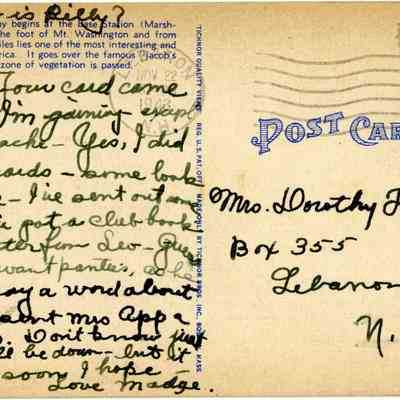 is Billy?
ny begins at the Base Station (Marsh-
the foot of Mt. Washington and from
iles lies one of the most interesting and
rica. It goes over the famous "Jacob's
zone of vegetation is passed.
Your card came
I'm gaining
ache - Yes, I did
cards - some look
- I've sent out some
got a club book
letter from Leo -
want panties, as he
say a word about
sent Mrs App a
Don't know just
ll be down - but it
soon I hope -
Love Madge.
TICHNOR QUALITY VIEWS REG. U.S. PAT. OFF. MADE ONLY BY TICHNOR BROS. INC., BOSTON, MASS.
NOV 22
POST CAR
Mrs. Dorothy
Box 355
Lebanon
N.